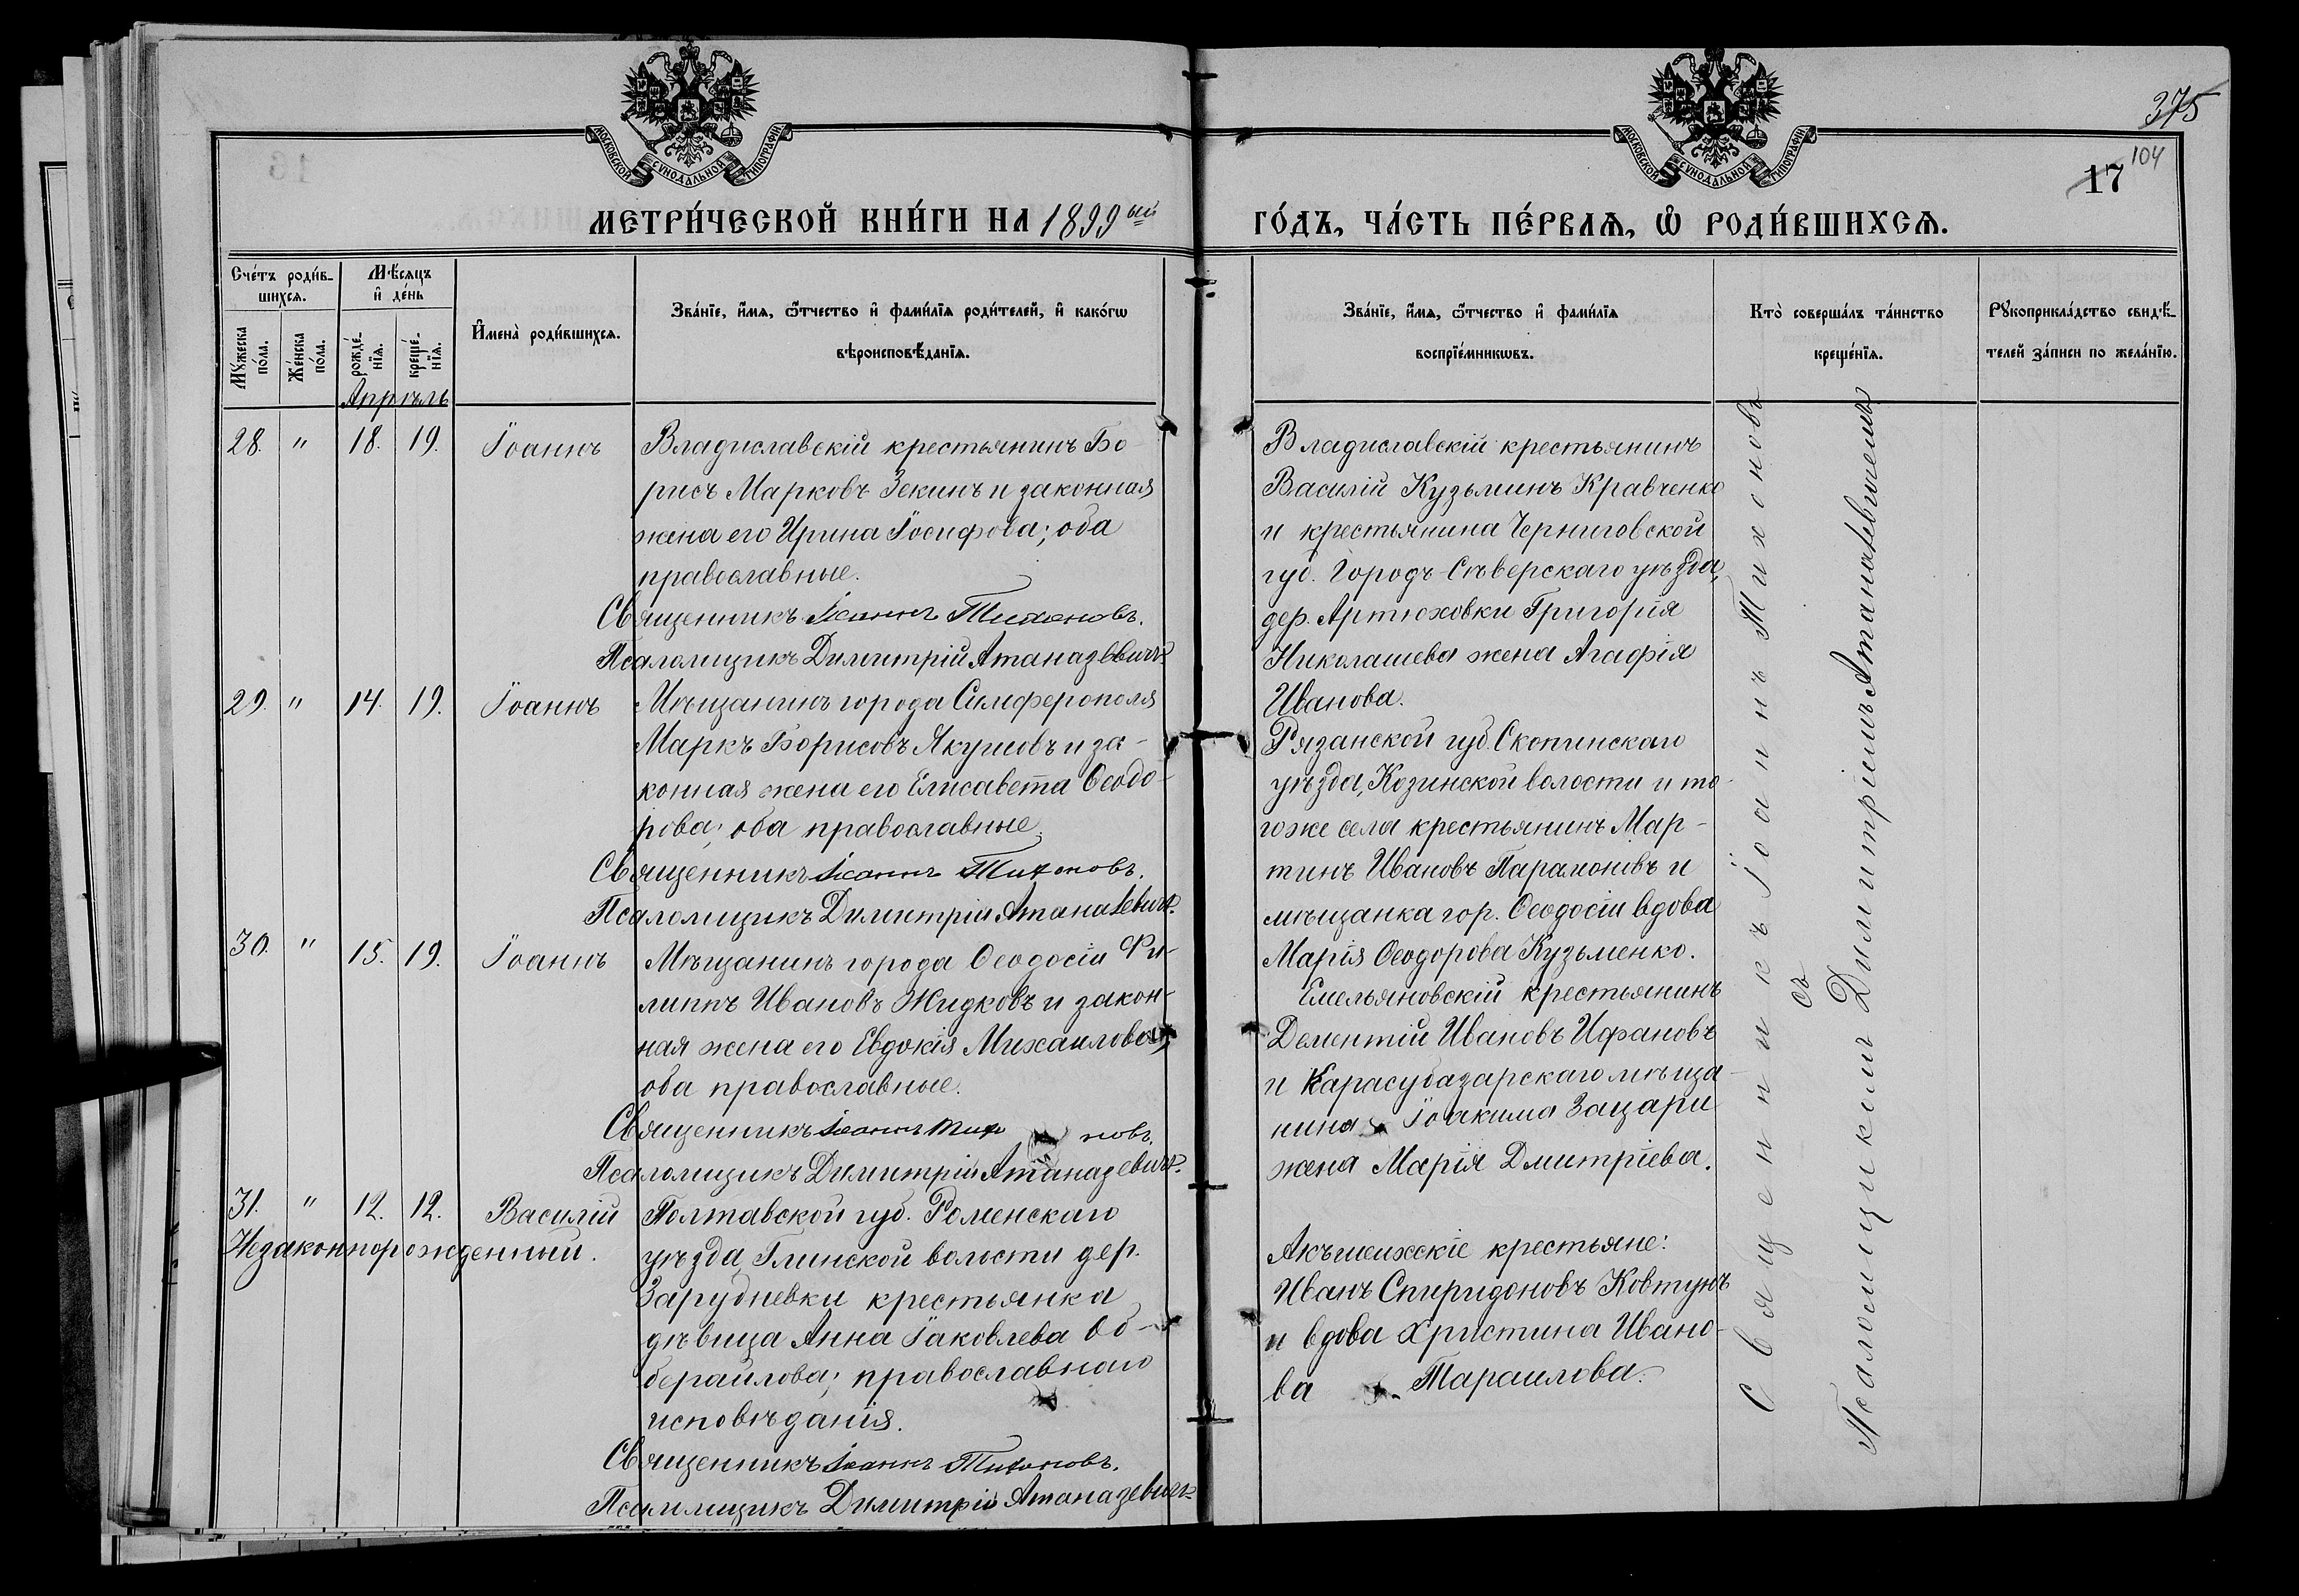 375
104
17
МОСКОВСКОЙ СУНОДАЛЬНОЙ ТИПОГРАФІИ
МОСКОВСКОЙ СУНОДАЛЬНОЙ ТИПОГРАФІИ
МЕТРИ́ЧЕСКОЙ КНИ́ГИ НА 1899ый
ГО́ДЪ, ЧА́СТЬ ПЕ́РВАѦ, Ѡ҆ РОДИ́ВШИХСѦ.
Сче́тъ роди́в-
шихсѧ.
Мꙋжеска по́ла.
Же́нска по́ла.
Мѣ́сяцъ
и҆ де́нь
рожде́-
нїѧ.
креще́-
нїѧ.
И҆мена̀ роди́вшихсѧ.
Зва́нїе, и҆́мѧ, ѻ҆́тчество и҆ фами́лїѧ роди́телей, и҆ како́гѡ
вѣроисповѣ́данїѧ.
Зва́нїе, и҆́мѧ, ѻ҆́тчество и҆ фами́лїѧ
воспрїе́мникѡвъ.
Кто̀ соверша́лъ та́инство
креще́нїѧ.
Рꙋкоприкла́дство свидѣ́-
телей за́писи по жела́нїю.
Апрѣль
28. " 18. 19. Іоаннъ
Владиславскій крестьянинъ Бо-
рисъ Марковъ Зекинъ и законная
жена его Ирина Іосифова; оба
православные.
Священникъ Іоаннъ Тихоновъ.
Псаломщикъ Димитрій Атаназевичъ
Владиславскій крестьянинъ
Василій Кузьминъ Кравченко
и крестьянина Черниговской
губ. Городъ-Сѣверскаго уѣзда,
дер. Артюховки Григорія
Николашева жена Агафія
Иванова.
29. " 14. 19. Іоаннъ
Мѣщанинъ города Симферополя
Маркъ Борисовъ Якушовъ и за-
конная жена его Елисавета Ѳеодо-
рова; оба православные.
Священникъ Іоаннъ Тихоновъ.
Псаломщикъ Димитрій Атаназевичъ.
Рязанской губ. Скопинскаго
уѣзда, Козинской волости и то-
гоже села крестьянинъ Мар-
тинъ Ивановъ Парамоновъ и
мѣщанка гор. Ѳеодосіи вдова
Марія Ѳеодорова Кузьменко.
30. " 15. 19. Іоаннъ
Мѣщанинъ города Ѳеодосіи Фи-
липпъ Ивановъ Жидковъ и закон-
ная жена его Евдокія Михаилова;
оба православные.
Священникъ Іоаннъ Тихо новъ.
Псаломщикъ Димитрій Атаназевичъ.
Емельяновскій крестьянинъ
Дементій Ивановъ Ифановъ
и Карасубазарскаго мѣща-
нина Іоакима Зацари
жена Марія Дмитріева.
31. " 12. 12. Василій
Незаконнорожденный.
Полтавской губ. Роменскаго
уѣзда, Глинской волости дер.
Зарудневки крестьянка
дѣвица Анна Іаковлева Об-
бераилова; православнаго
исповѣданія.
Священникъ Іоаннъ Тихоновъ.
Псаломщикъ Димитрій Атаназевичъ
Акъшеихскіе крестьяне:
Иванъ Спиридоновъ Ковтунъ
и вдова Христина Ивано-
ва Тараилова.
Священникъ Іоаннъ Тихоновъ
съ
Псаломщикомъ Димитріемъ Атаназевичемъ